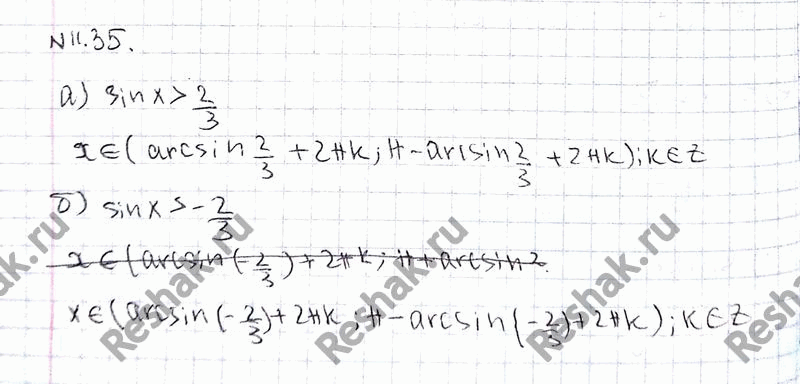 N 11.35.
а) sin x > 2/3
x ∈ ( arcsin 2/3 + 2πk ; π - arcsin 2/3 + 2πk ) ; k ∈ Z
б) sin x > - 2/3
x ∈ ( arcsin (- 2/3 ) + 2πk ; π + arcsin 2
x ∈ ( arcsin (- 2/3 ) + 2πk ; π - arcsin (- 2/3 ) + 2πk ) ; k ∈ Z
Reshak.ru
Reshak.ru
Reshak.ru
Reshak.ru
Reshak.ru
Reshak.ru
Reshak.ru